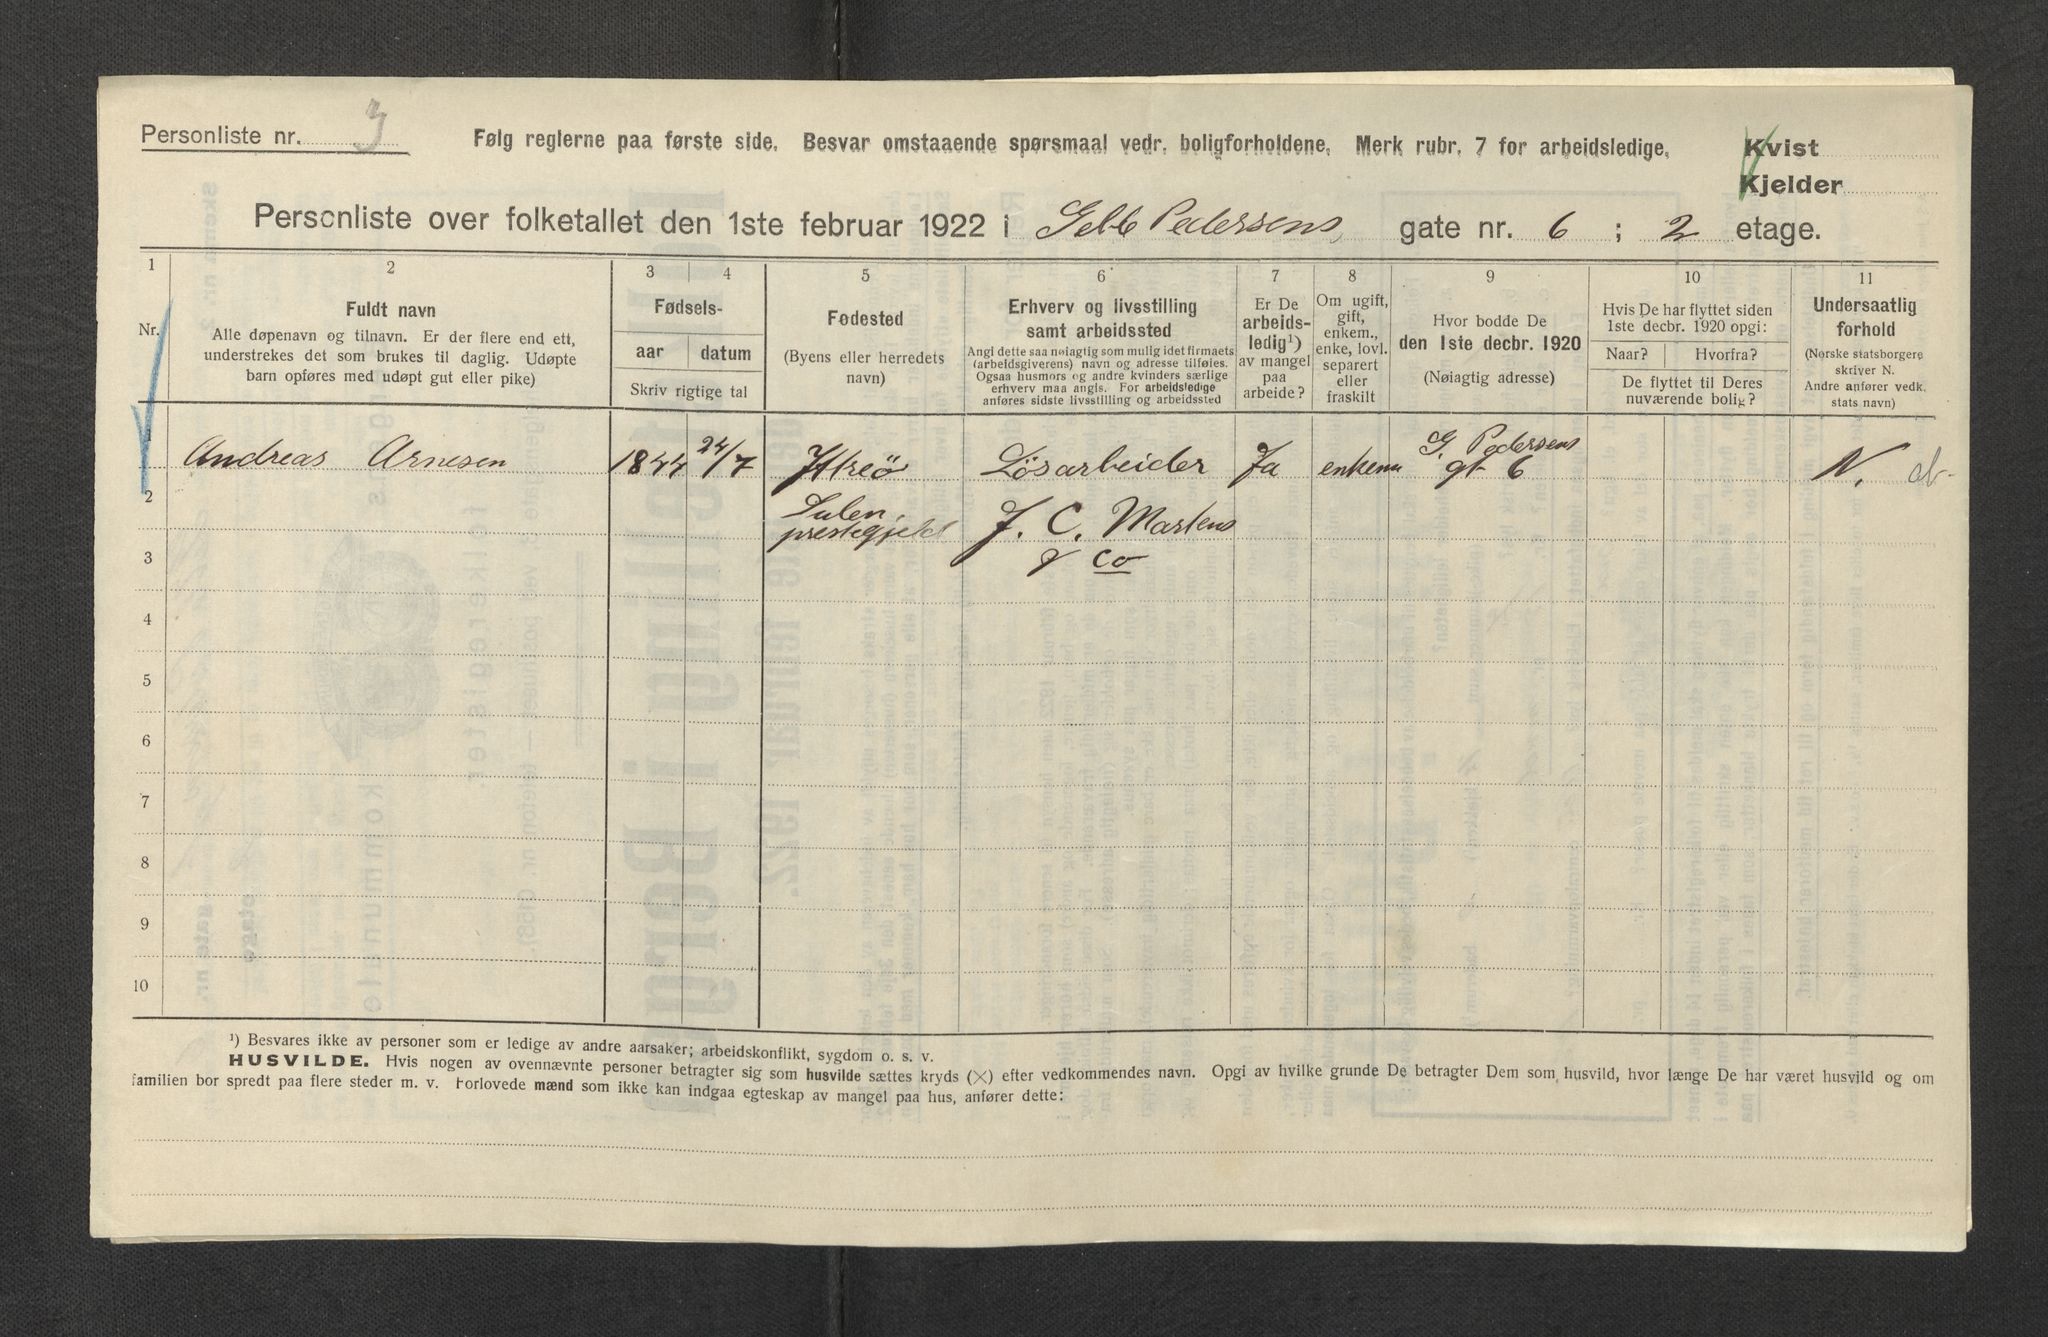 Personliste nr. 3
Følg reglerne paa første side. Besvar omstaaende spørsmaal vedr. boligforholdene. Merk rubr. 7 for arbeidsledige.
Kvist
Kjelder
Personliste over folketallet den 1ste februar 1922 i Geble Pedersens gate nr. 6 ; 2 etage.
1 2 3 4 5 6 7 8 9 10 11
Nr.
Fuldt navn
Alle døpenavn og tilnavn. Er der flere end ett,
understrekes det som brukes til daglig. Udøpte
barn opføres med udøpt gut eller pike)
Fødsels-
aar datum
Skriv rigtige tal
Fødested
(Byens eller herredets
navn)
Erhverv og livsstilling
samt arbeidssted
Angi dette saa nøiagtig som mulig idet firmaets
(arbeidsgiverens) navn og adresse tilføies.
Ogsaa husmors og andre kvinders særlige
erhverv maa angis. For arbeidsledige
anføres sidste livsstilling og arbeidssted
Er De
arbeids-
ledig¹)
av mangel
paa
arbeide?
Om ugift,
gift,
enkem.,
enke, lovl.
separert
eller
fraskilt
Hvor bodde De
den 1ste decbr. 1920
(Nøiagtig adresse)
Hvis De har flyttet siden
1ste decbr. 1920 opgi:
Naar? Hvorfra?
De flyttet til Deres
nuværende bolig?
Undersaatlig
forhold
(Norske statsborgere
skriver N.
Andre anfører vedk.
stats navn)
1 Andreas Arnesen 1844 24/7 Ytreö Lösarbeider Ja enkem G. Pedersens gt 6 N.
2 Sulen prestegjeld J. C. Martens
3 & co
4
5
6
7
8
9
10
¹) Besvares ikke av personer som er ledige av andre aarsaker; arbeidskonflikt, sygdom o. s. v.
HUSVILDE. Hvis nogen av ovennævnte personer betragter sig som husvilde sættes kryds (×) efter vedkommendes navn. Opgi av hvilke grunde De betragter Dem som husvild, hvor længe De har været husvild og om
familien bor spredt paa flere steder m. v. Forlovede mænd som ikke kan indgaa egteskap av mangel paa hus, anfører dette: